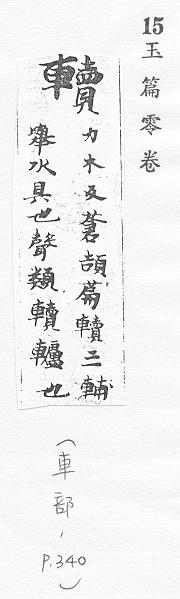 15
玉篇零卷
𨏔
力木反蒼頡篇𨏔三輔
舉水具也聲類𨏔轤也
(車部, p.340)